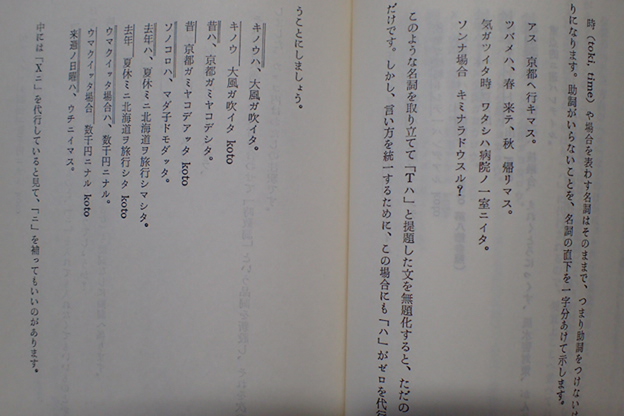 時（toki, time）や場合を表わす名詞はそのままで、つまり助詞をつけない
りになります。助詞がいらないことを、名詞の直下を一字分あけて示します。
アス　京都へ行キマス。
ツバメハ、春　来テ、秋　帰リマス。
気ガツイタ時　ワタシハ病院ノ一室ニイタ。
ソンナ場合　キミナラドウスル?
このような名詞を取り立てて「Tハ」と提題した文を無題化すると、ただの
だけです。しかし、言い方を統一するために、この場合にも「ハ」がゼロを代行
うことにしましょう。
キノウハ、大風ガ吹イタ。
キノウ　大風ガ吹イタ koto
昔ハ、京都ガミヤコデシタ。
昔　京都ガミヤコデアッタ koto
ソノコロハ、マダ子ドモダッタ。
去年ハ、夏休ミニ北海道ヲ旅行シマシタ。
去年　夏休ミニ北海道ヲ旅行シタ koto
ウマクイッタ場合ハ、数千円ニナル。
ウマクイッタ場合　数千円ニナル koto
来週ノ日曜ハ、ウチニイマス。
中には「Xニ」を代行していると見て、「ニ」を補ってもいいのがあります。